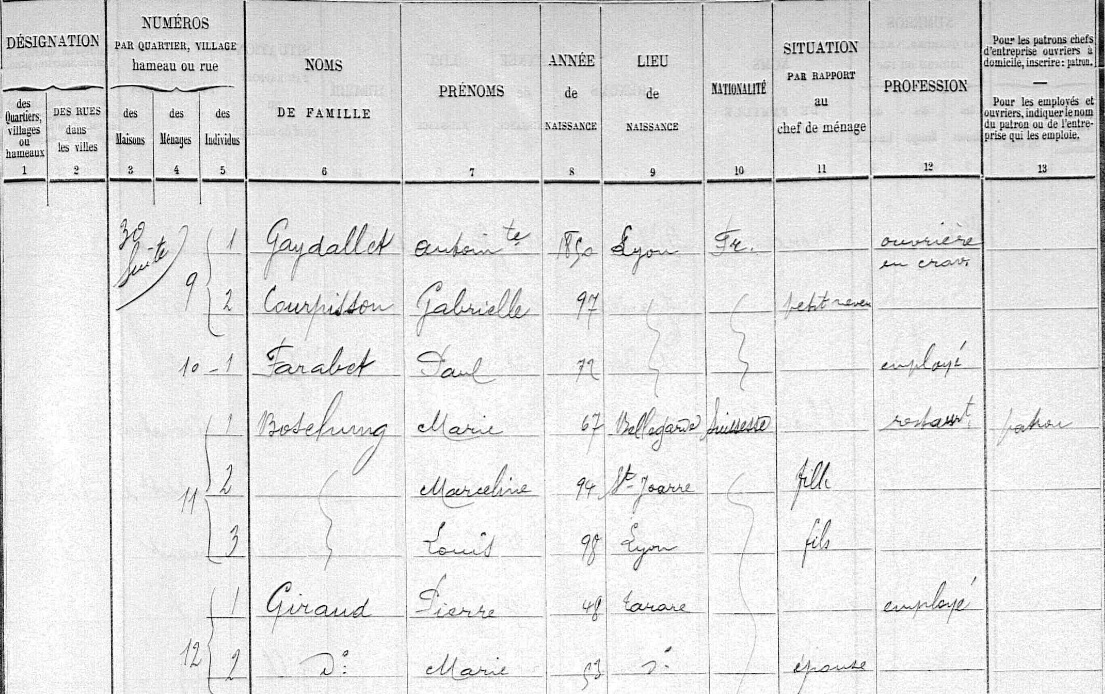 DÉSIGNATION
des Quartiers, villages ou hameaux
DES RUES dans les villes
NUMÉROS
PAR QUARTIER, VILLAGE
hameau ou rue
des Maisons
des Ménages
des Individus
NOMS
DE FAMILLE
PRÉNOMS
ANNÉE
de
NAISSANCE
LIEU
de
NAISSANCE
NATIONALITÉ
SITUATION
PAR RAPPORT
au
chef de ménage
PROFESSION
Pour les patrons chefs
d'entreprise ouvriers à
domicile, inscrire : patron.
—
Pour les employés et
ouvriers, indiquer le nom
du patron ou de l'entre-
prise qui les emploie.
1 2 3 4 5 6 7 8 9 10 11 12 13
30 1 Gaydallet antointe 1850 Lyon Fr. ouvrière
suite en crav.
9 2 Courpisson Gabrielle 97 petit neveu
10 - 1 Farabet Paul 72 employé
1 Boschung Marie 67 Bellegarde Suissesse restaurt patron
11 2 Marceline 94 St Joarre fille
3 Louis 98 Lyon fils
1 Giraud Pierre 48 tarare employé
12 2 Do Marie 53 do épouse